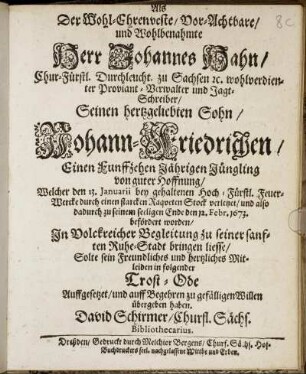 Als
Der Wohl-Ehrenveste/Vor-Achtbare/
und Wohlbenahmte
Herr Johannes Hahn/
Chur-Fürstl. Durchleucht. zu Sachsen ꝛc. wohlverdien-
ter Proviant-Verwalter und Jagt-
Schreiber/
Seinen hertzgeliebten Sohn/
Johann-Friedrichen/
Einen Funffzehen Jährigen Jüngling
von guter Hoffnung/
Welcher den 13. Januarii bey gehaltenen Hoch-Fürstl. Feuer-
Wercke durch einen starcken Raqveten Stock verletzet/und also
dadurch zu seinem seeligen Ende den 12. Febr. 1673.
befördert worden/
In Volckreicher Begleitung zu seiner sanff-
ten Ruhe-Stadt bringen liesse/
Solte sein Freundliches und hertzliches Mit-
leiden in folgender
Trost-Ode
Auffgesetzt/und auff Begehren zu gefälligen Willen
übergeben haben.
David Schirmer/Churfl. Sächs.
Bibliothecarius.
Dreßden/Gedruckt durch Melchior Bergens/Churf. Sächs. Hof-
Buchdruckers seel. nachgelassne Witbe und Erben.